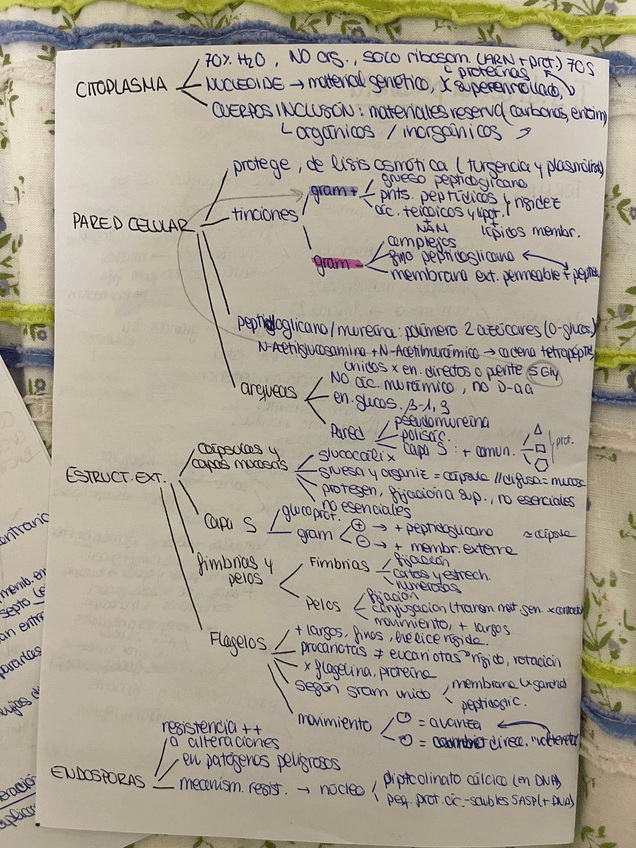 70% H2O, NO org., solo ribosom. (ARN + prot.) 70S
CITOPLASMA
NUCLEOIDE → material genético, x superenrollado,
proteínas
CUERPOS INCLUSIÓN: materiales reserva (carbonos, enzim)
orgánicos / inorgánicos
protege, de lisis osmótica (turgencia y plasmólisis)
PARED CELULAR
tinciones
gram +
grueso peptidoglicano
pnts. peptídicos y rigidez
ác. teicoicos y lipt.
NAM
lípidos membr.
gram -
complejos
fino peptidoglicano
membrana ext. permeable + peptido
peptidoglicano/mureína: polímero 2 azúcares (O-glucos.)
N-Acetilglucosamina + N-Acetilmurámico → cadena tetrapéptid
unidos x en. directos o puente 5 Gly
arqueas
NO ác. murámico, no D-aa
en. glucos. β-1,3
Pared
pseudomureína
polisác.
capa S : + comun.
prot.
ESTRUCT. EXT.
cápsulas y
capas mucosas
glucocálix
gruesa y organiz = cápsula // difusa = mucosa
protegen, fijación a sup., no esenciales
no esenciales
Capa S
glucoprot.
gram
+ → + peptidoglicano
- → + membr. externa
≈ cápsula
fimbrias y
pelos
Fimbrias
fijación
cortas y estrech.
numerosas
Pelos
fijación
conjugación (transm. mat. gen. x contacto)
movimiento, + largos
Flagelos
+ largos, finos, hélice rígida.
procariotas ≠ eucariotas → rígido, rotación
x flagelina, proteína
según gram unido
membrana
peptidoglic.
movimiento
= avanza
= cambio direc.
ENDOSPORAS
resistencia ++
a alteraciones
en patógenos peligrosos
mecanism. resist. → núcleo
dipicolinato cálcico (en DNA)
peq. prot. ác.-solubles SASP (+ DNA)